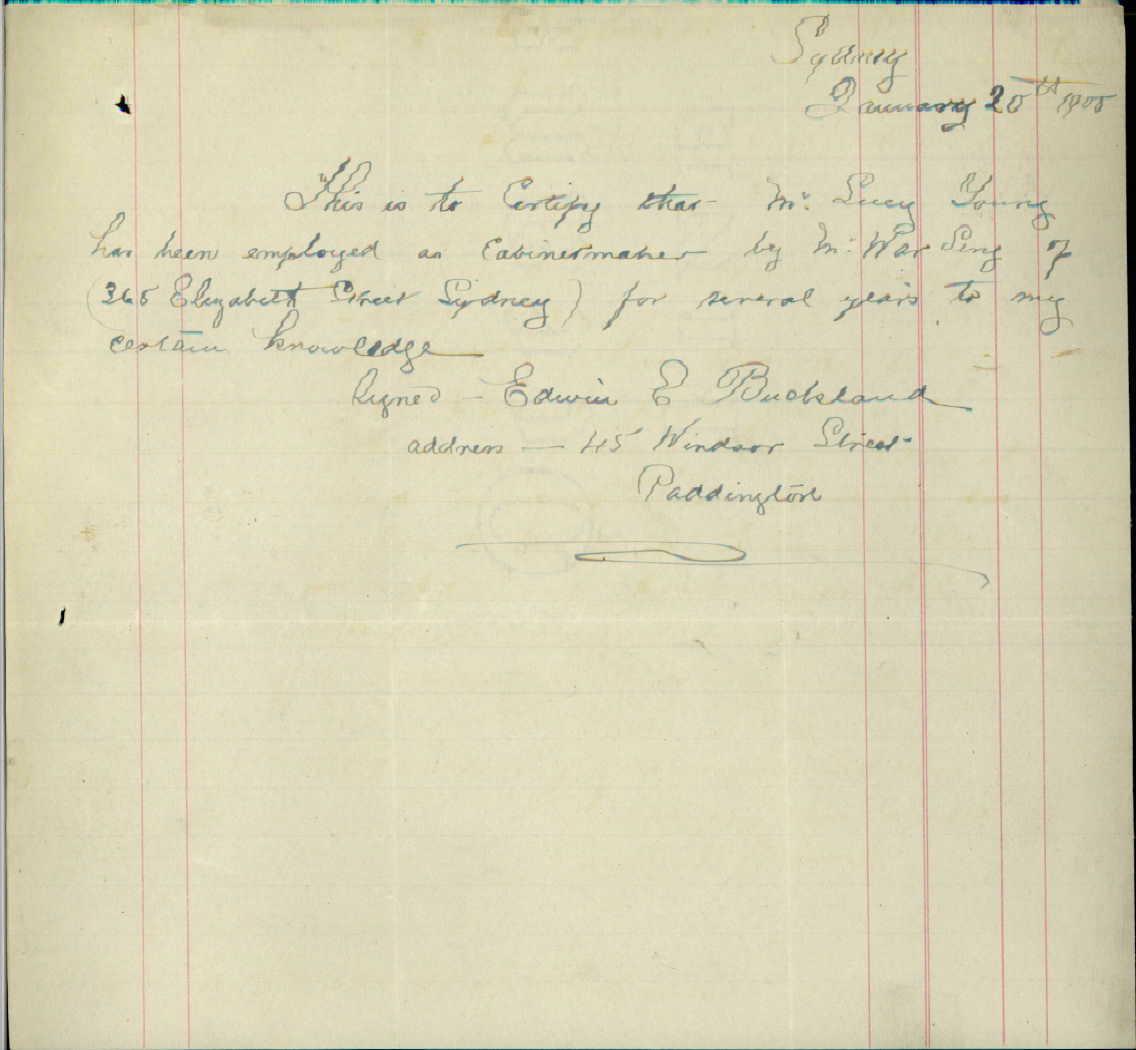 Sydney
January 20th 1905
This is to Certify that Mr. Lucy Young
has been employed as Cabinetmaker by Mr. War Sing of
(365 Elizabeth Street Sydney) for several years to my
certain knowledge
Signed - Edwin E Buckland
address - 45 Windsor Street
Paddington